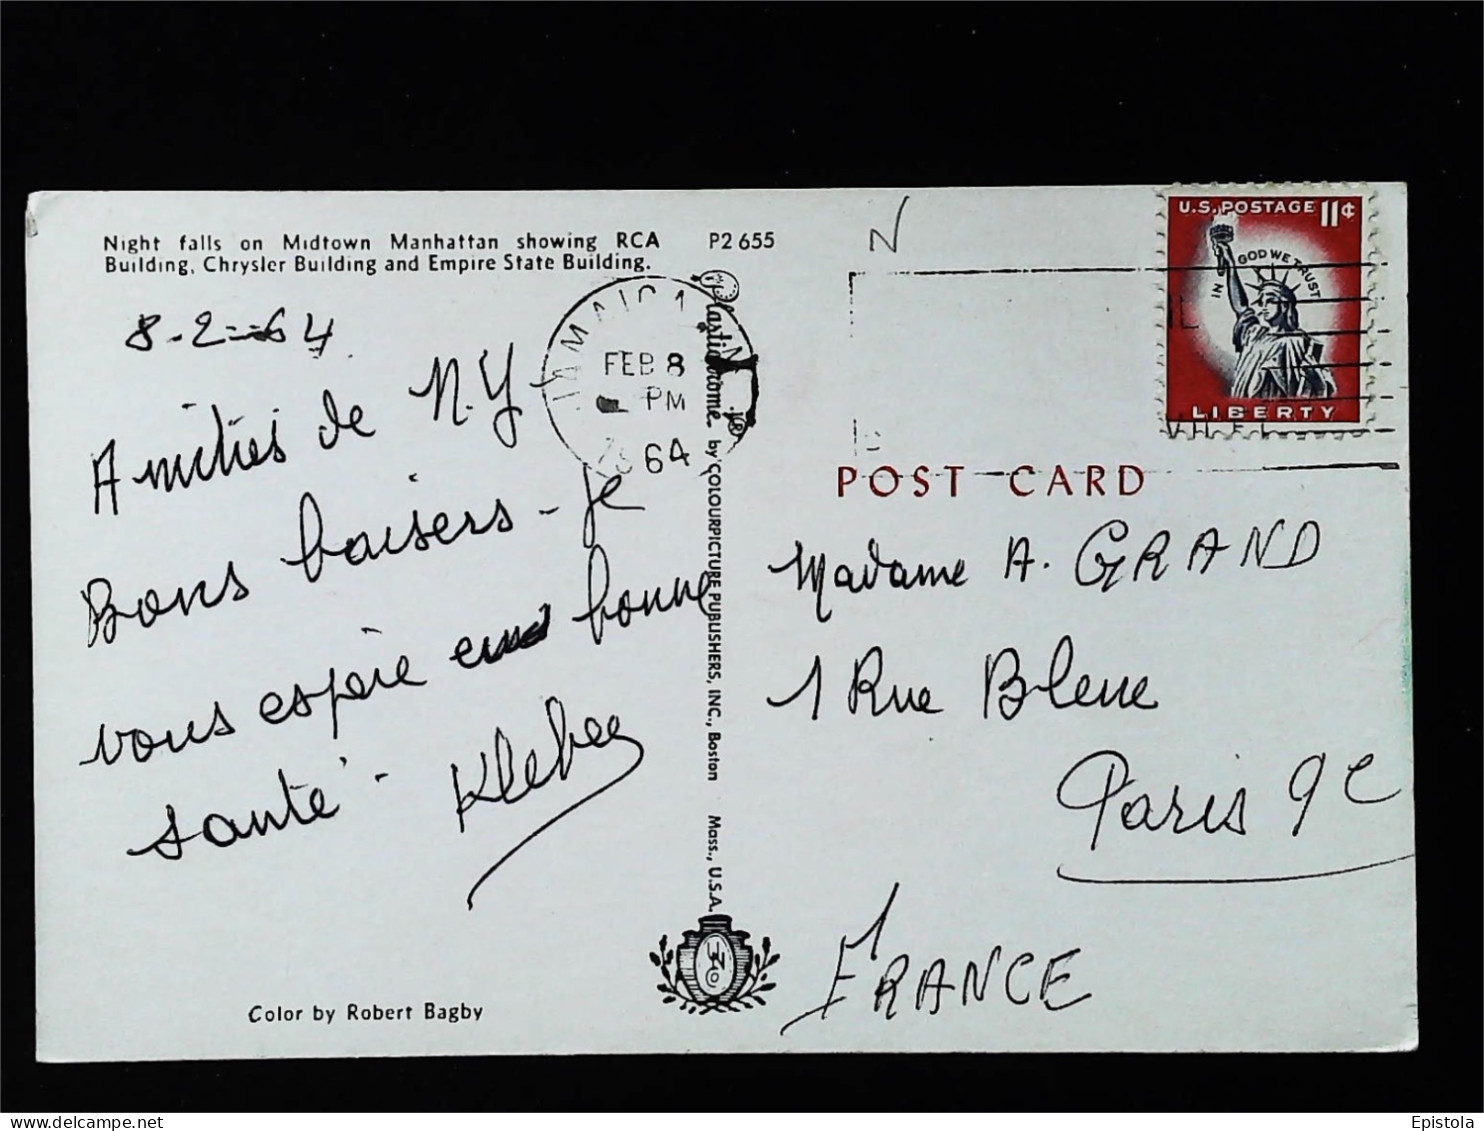 Night falls on Midtown Manhattan showing RCA
Building, Chrysler Building and Empire State Building.
P2 655
8-2-64
Amitiés de N.Y
Bons baisers - je
vous espère en bonne
santé - Kleber
Color by Robert Bagby
JAMAICA N
FEB 8
PM
64
Plastichrome ® by COLOURPICTURE PUBLISHERS, INC., Boston Mass., U.S.A.
N
U.S. POSTAGE 11¢
IN GOD WE TRUST
LIBERTY
POST CARD
Madame A. GRAND
1 Rue Bleue
Paris 9e
FRANCE
delcampe.net
Epistola